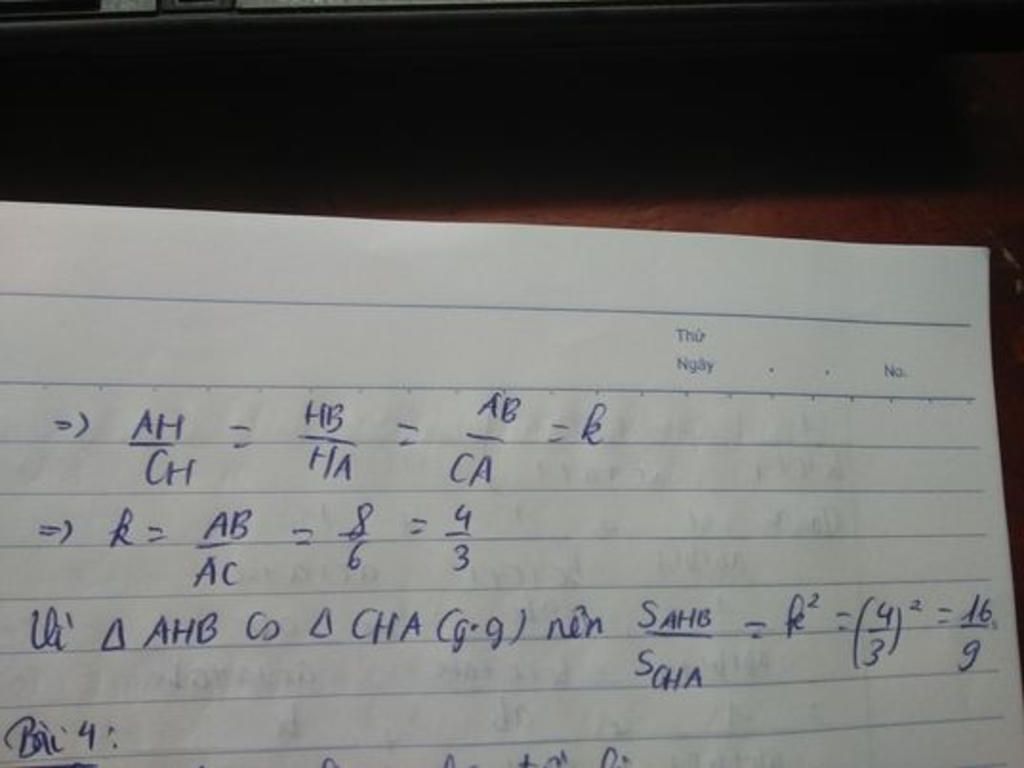 Thứ
Ngày . . No.
=> AH/CH = HB/HA = AB/CA = k
=> k = AB/AC = 8/6 = 4/3
Vì Δ AHB ∽ Δ CHA (g.g) nên S_AHB/S_CHA = k² = (4/3)² = 16/9
Bài 4: